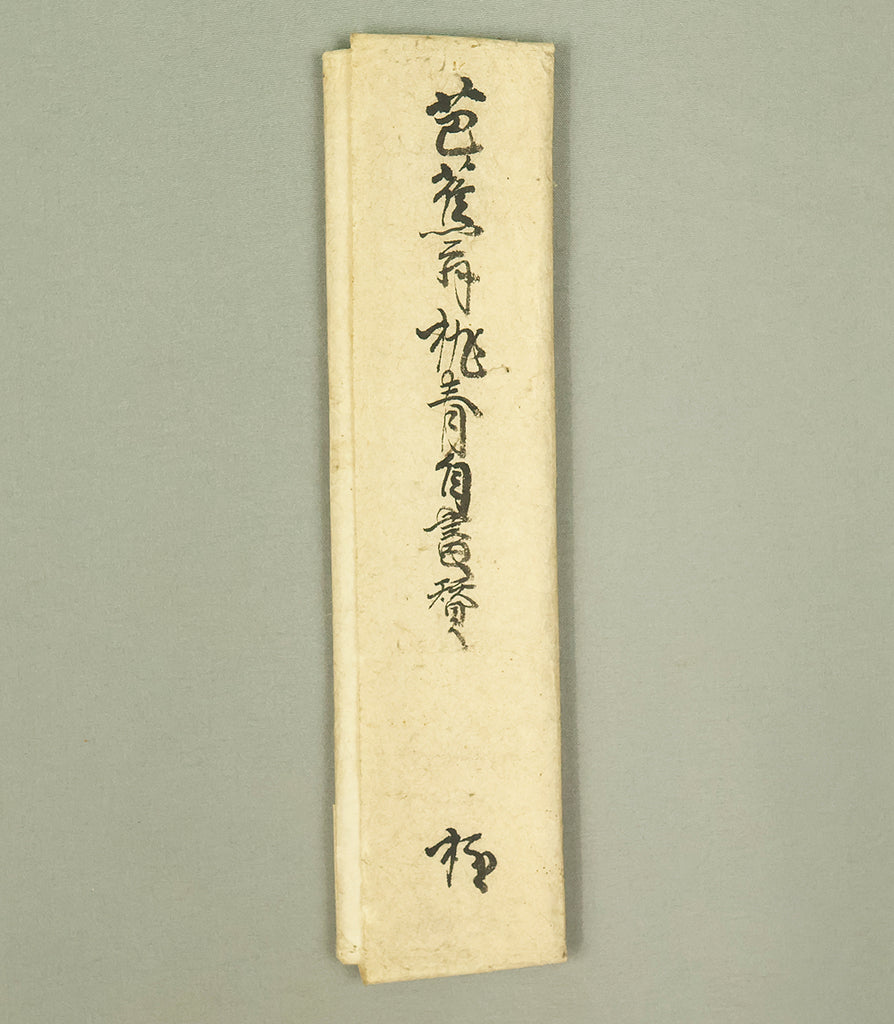 芭蕉翁桃青自畫賛
極